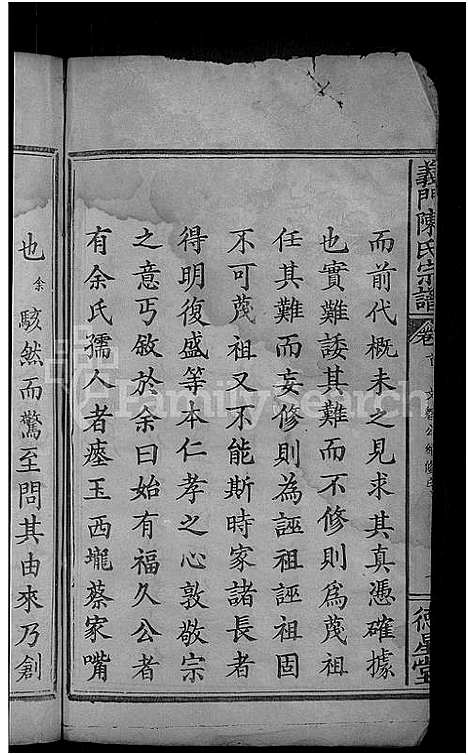 義門陳氏宗譜
卷首
德星堂
而前代概未之見求其真憑確據
也實難諉其難而不修則為蔑祖
任其難而妄修則為誣祖誣祖固
不可蔑祖又不能斯時家諸長者
得明復盛等本仁孝之心敦敬宗
之意丐敘於余曰始有福久公者
有余氏孺人者瘞玉西壠蔡家嘴
也余駭然而驚至問其由來乃創
FamilySearch